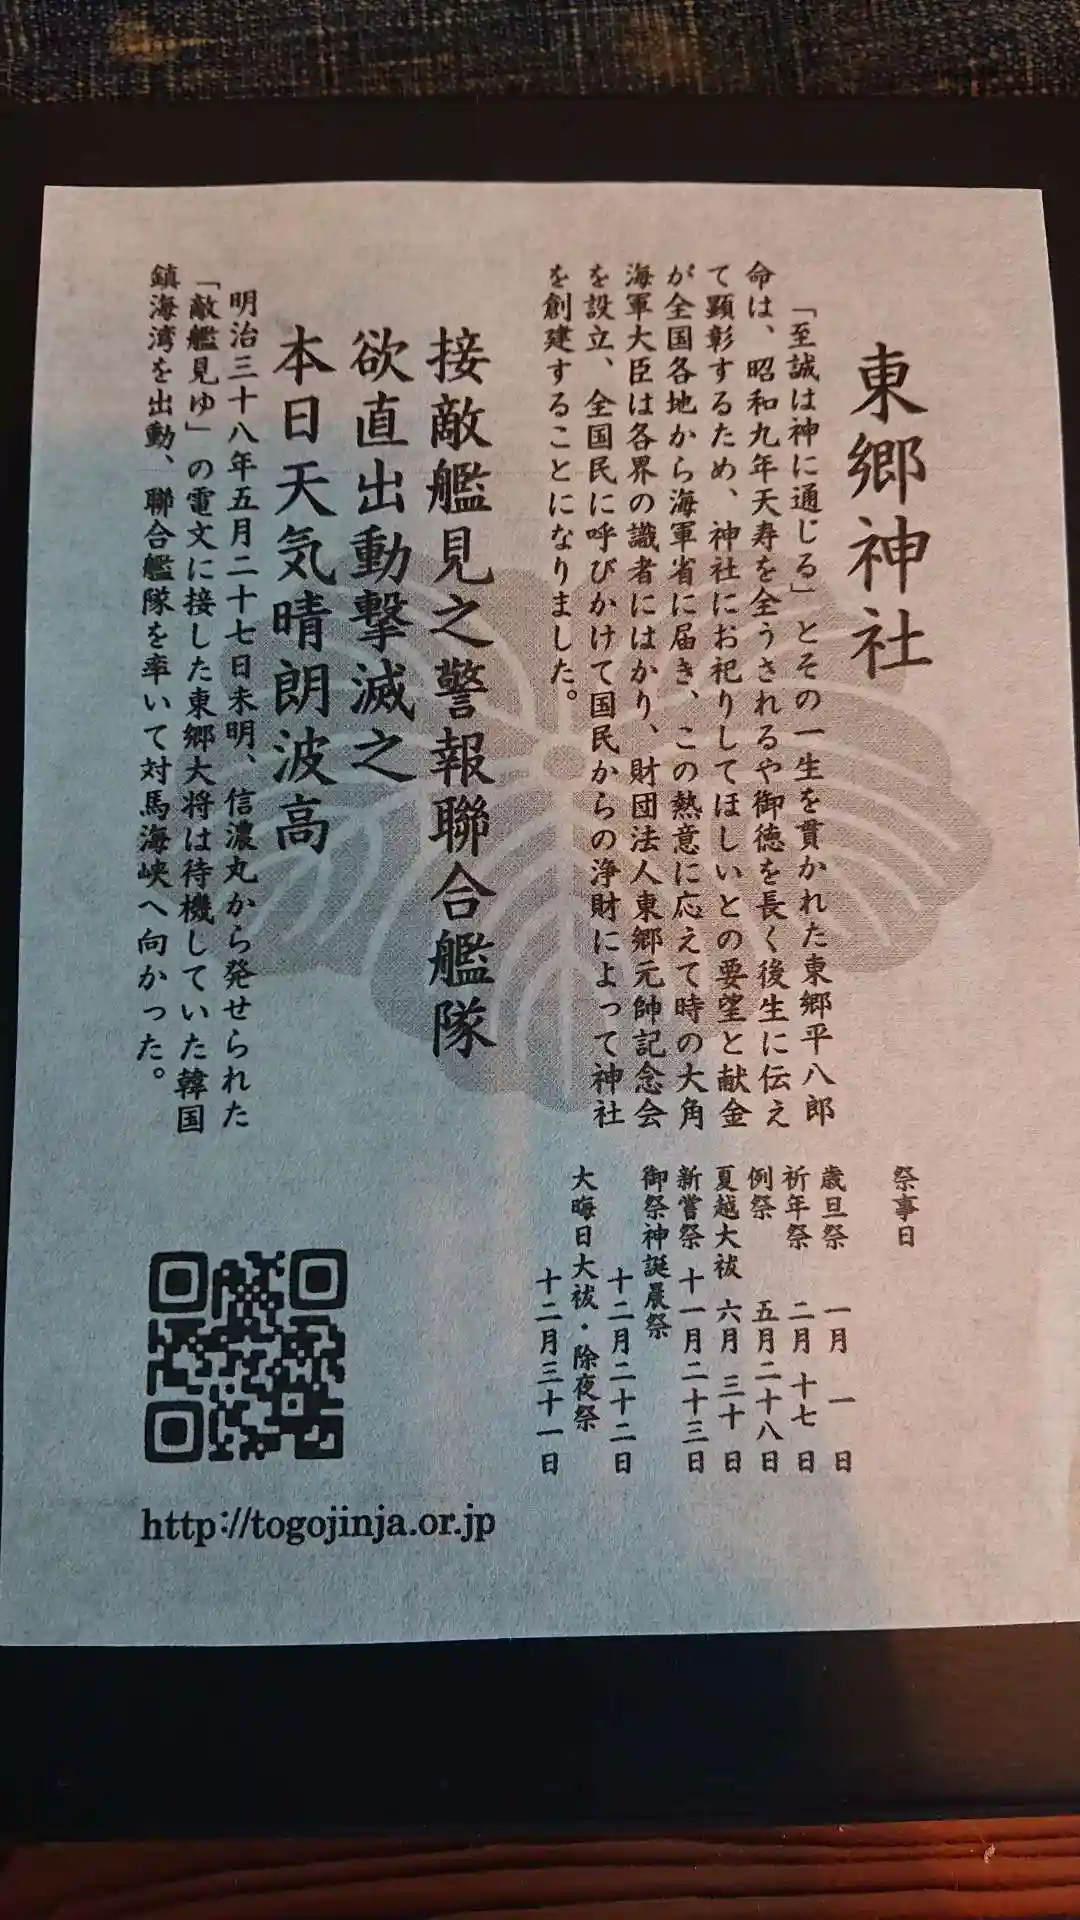 東郷神社
「至誠は神に通じる」とその一生を貫かれた東郷平八郎
命は、昭和九年天寿を全うされるや御徳を長く後生に伝え
て顕彰するため、神社にお祀りしてほしいとの要望と献金
が全国各地から海軍省に届き、この熱意に応えて時の大角
海軍大臣は各界の識者にはかり、財団法人東郷元帥記念会
を設立、全国民に呼びかけて国民からの浄財によって神社
を創建することになりました。
接敵艦見之警報聯合艦隊
欲直出動撃滅之
本日天気晴朗波高
明治三十八年五月二十七日未明、信濃丸から発せられた
「敵艦見ゆ」の電文に接した東郷大将は待機していた韓国
鎮海湾を出動、聯合艦隊を率いて対馬海峡へ向かった。
祭事日
歳旦祭 一月 一 日
祈年祭 二月 十七 日
例祭 五月二十八日
夏越大祓 六月 三十 日
新嘗祭 十一月二十三日
御祭神誕晨祭
十二月二十二日
大晦日大祓・除夜祭
十二月三十一日
http://togojinja.or.jp